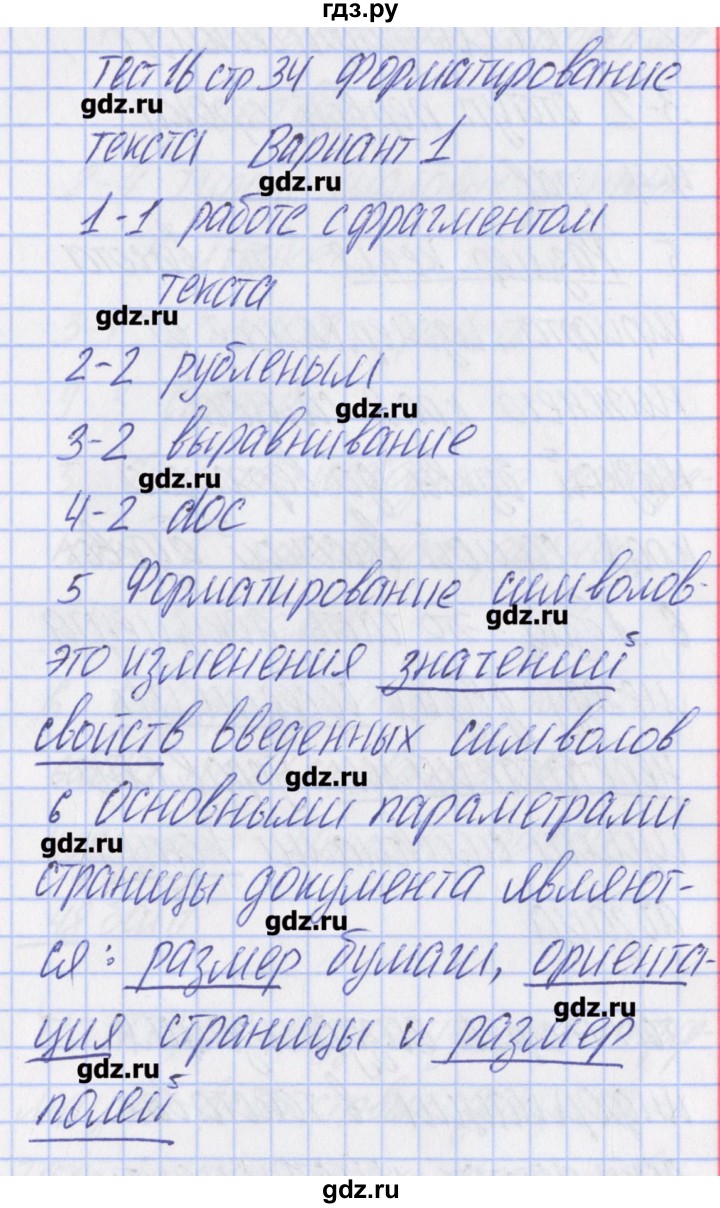 гдз.ру
Тест 16 стр 34 Форматирование
gdz.ru
текста Вариант 1
gdz.ru
1-1 работе с фрагментом
текста
gdz.ru
2-2 рубленым
gdz.ru
3-2 выравнивание
gdz.ru
4-2 doc
5 Форматирование символов-
gdz.ru
это изменения значений
свойств введенных символов
gdz.ru
6 Основными параметрами
gdz.ru
страницы документа являют-
gdz.ru
ся: размер бумаги, ориента-
gdz.ru
ция страницы и размер
gdz.ru
полей
gdz.ru